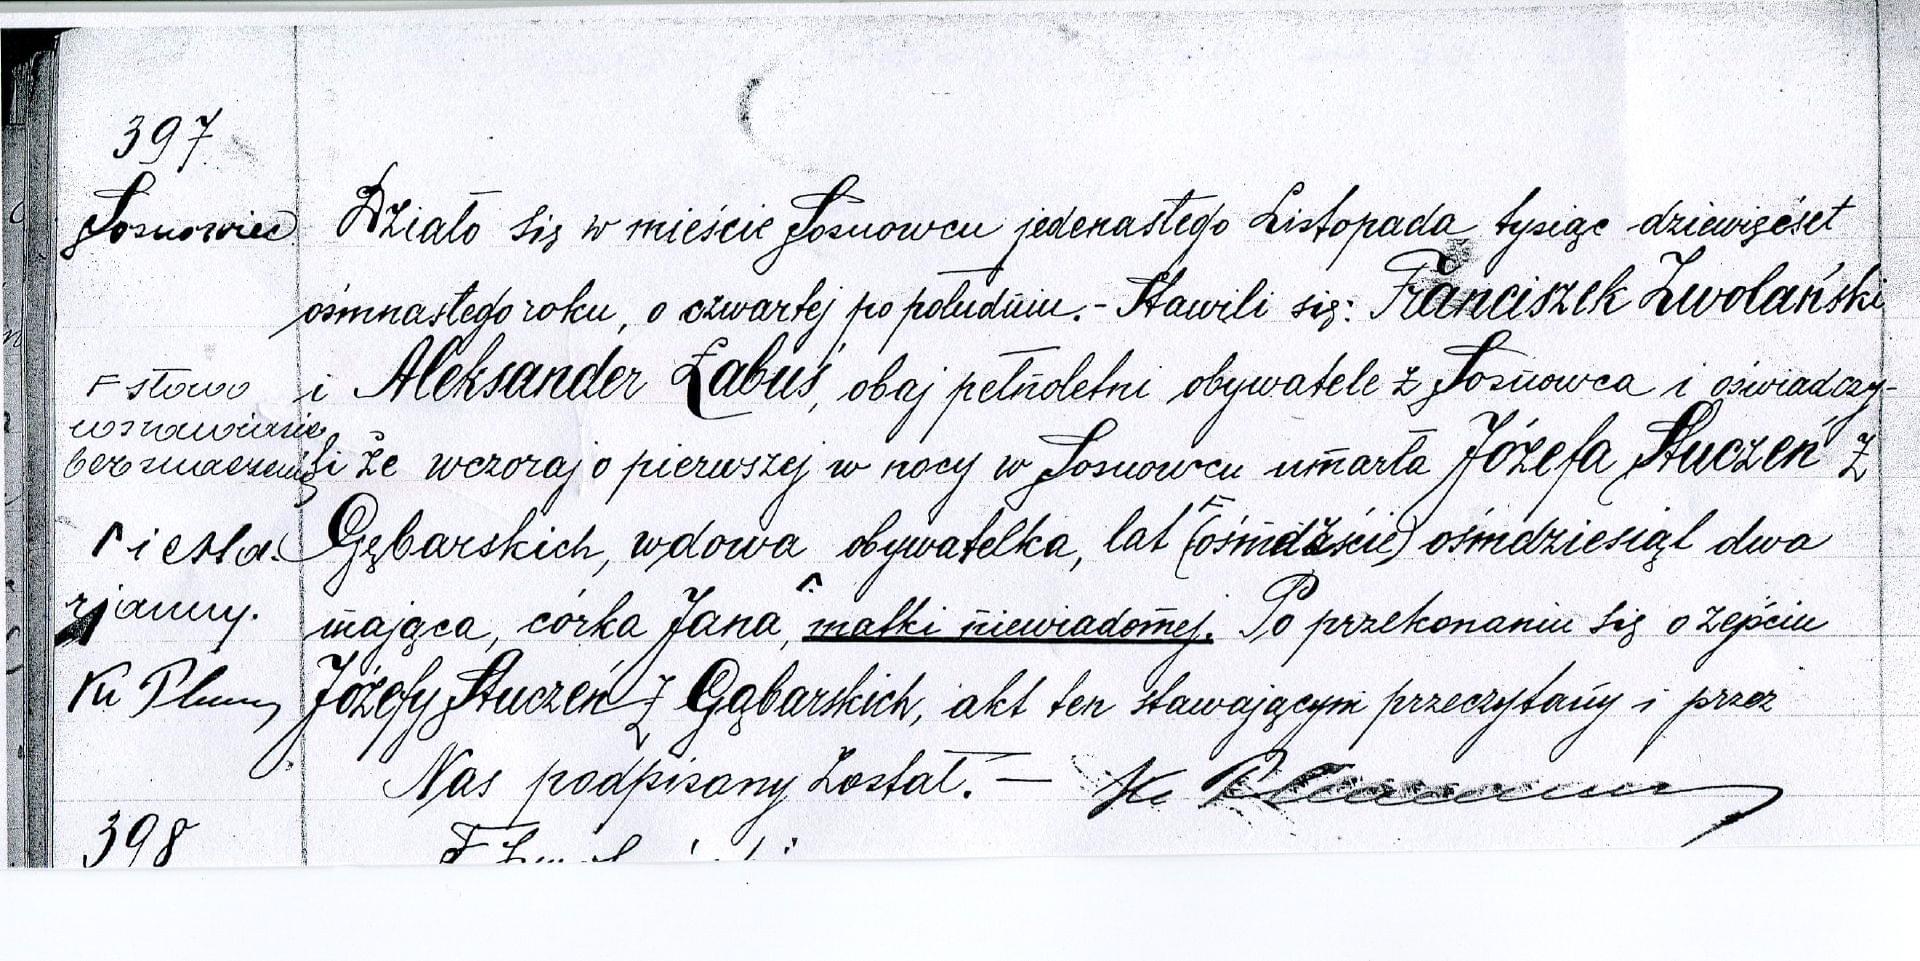 397
Sosnowiec
Działo się w mieście Sosnowcu jedenastego Listopada tysiąc dziewięćset
ośmnastego roku, o czwartej po południu. - Stawili się: Franciszek Zwolański
i Aleksander Łabuś, obaj pełnoletni obywatele z Sosnowca i oświadczy-
li że wczoraj o pierwszej w nocy w Sosnowcu umarła Józefa Stuczeń z
Gębarskich, wdowa obywatelka, lat (ośmdzście) ośmdziesiąt dwa
mająca, córka Jana, matki niewiadomej. Po przekonaniu się o zejściu
Józefy Stuczeń z Gąbarskich, akt ten stawającym przeczytany i przez
Nas podpisany został. —
słowo
w nawiasie
bez znaczenia
i
Ks
Ks
398